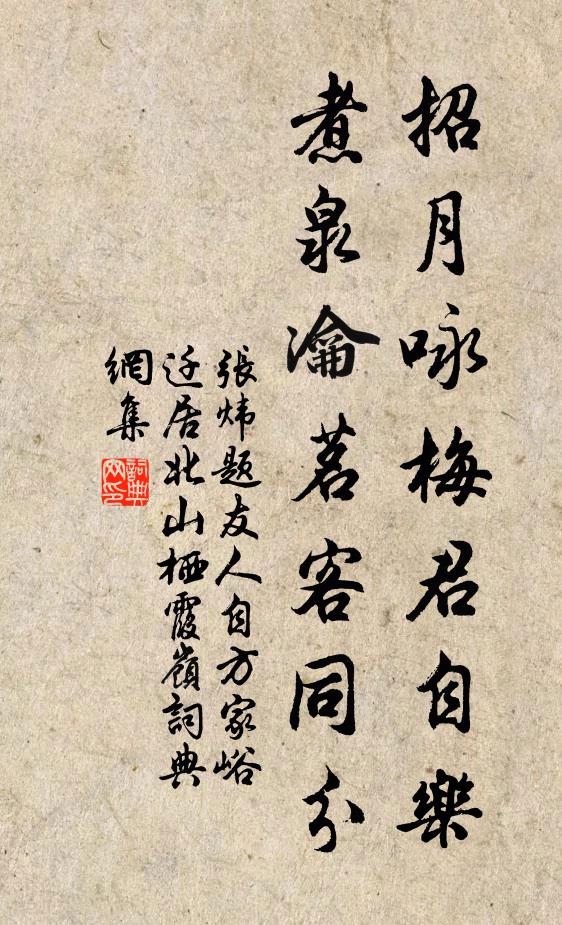 招月咏梅君自樂
煮泉瀹茗客同分
張煒題友人自方家峪
迁居北山栖霞嶺詞典
網集
詞典
网印